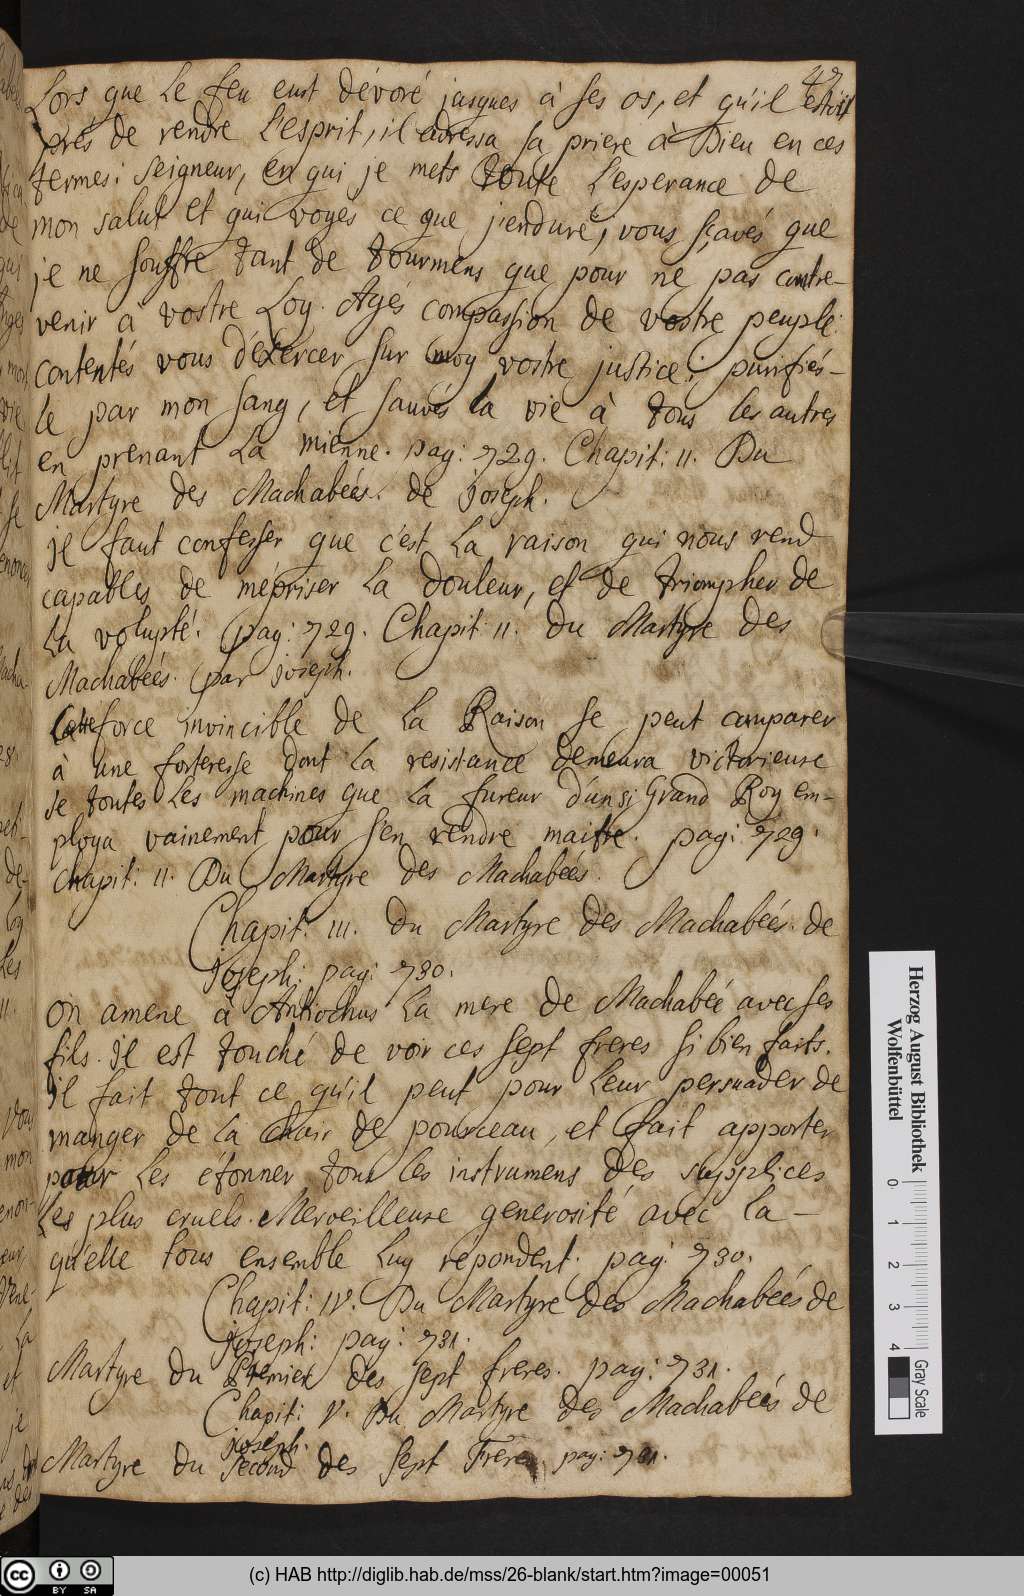 47
Lors que Le feu eust dévoré jusques à ses os, et qu'il estoit
prés de rendre L'esprit, il adressa sa priere à Dieu en ces
termes: Seigneur, en qui je mets toute L'esperance de
mon salut et qui voyes ce que j'enduré, vous sçavés que
je ne souffre tant de tourmens que pour ne pas contre-
venir à vostre Loy. Ayés compassion de vostre peuple:
contentés vous d'éxercer sur moy vostre justice; purifiés-
le par mon sang, et sauvés la vie à tous les autres
en prenant La mienne. pag: 729. Chapit: II. Du
Martyre des Machabeés. de joseph.
jl faut confesser que c'est La raison qui nous rend
capables de mépriser La douleur, et de triompher de
La volupté. pag: 729. Chapit: II. du Martyre des
Machabeés. par joseph.
Cette force invincible de La Raison se peut comparer
à une forteresse dont La resistance demeura victorieuse
de toutes Les machines que La fureur d'un si Grand Roy em-
ploya vainement pour s'en rendre maitre. pag: 729.
chapit: II. Du Martyre des Machabeés.
Chapit: III. du Martyre des Machabeés. de
Joseph: pag: 730.
on amene à Antiochus La mere de Machabeé avec ses
fils. Il est touché de voir ces sept freres si bien faits.
il fait tout ce qu'il peut pour Leur persuader de
manger de La Chair de pourceau, et fait apporter
pour Les etonner tous Les instrumens des supplices
Les plus cruels. Merveilleuse generosité avec La-
qu'elle tous ensemble Luy repondent. pag: 730.
Chapit: IV. Du Martyre des Machabeés de
joseph: pag: 731.
Martyre du Premier des sept freres. pag: 731.
Chapit: V. Du Martyre des Machabeés de
joseph.
Martyre du Second des Sept Freres pag: 731.
Herzog August Bibliothek
Wolfenbüttel
0 1 2 3 4
Gray Scale
cc BY SA
(c) HAB http://diglib.hab.de/mss/26-blank/start.htm?image=00051